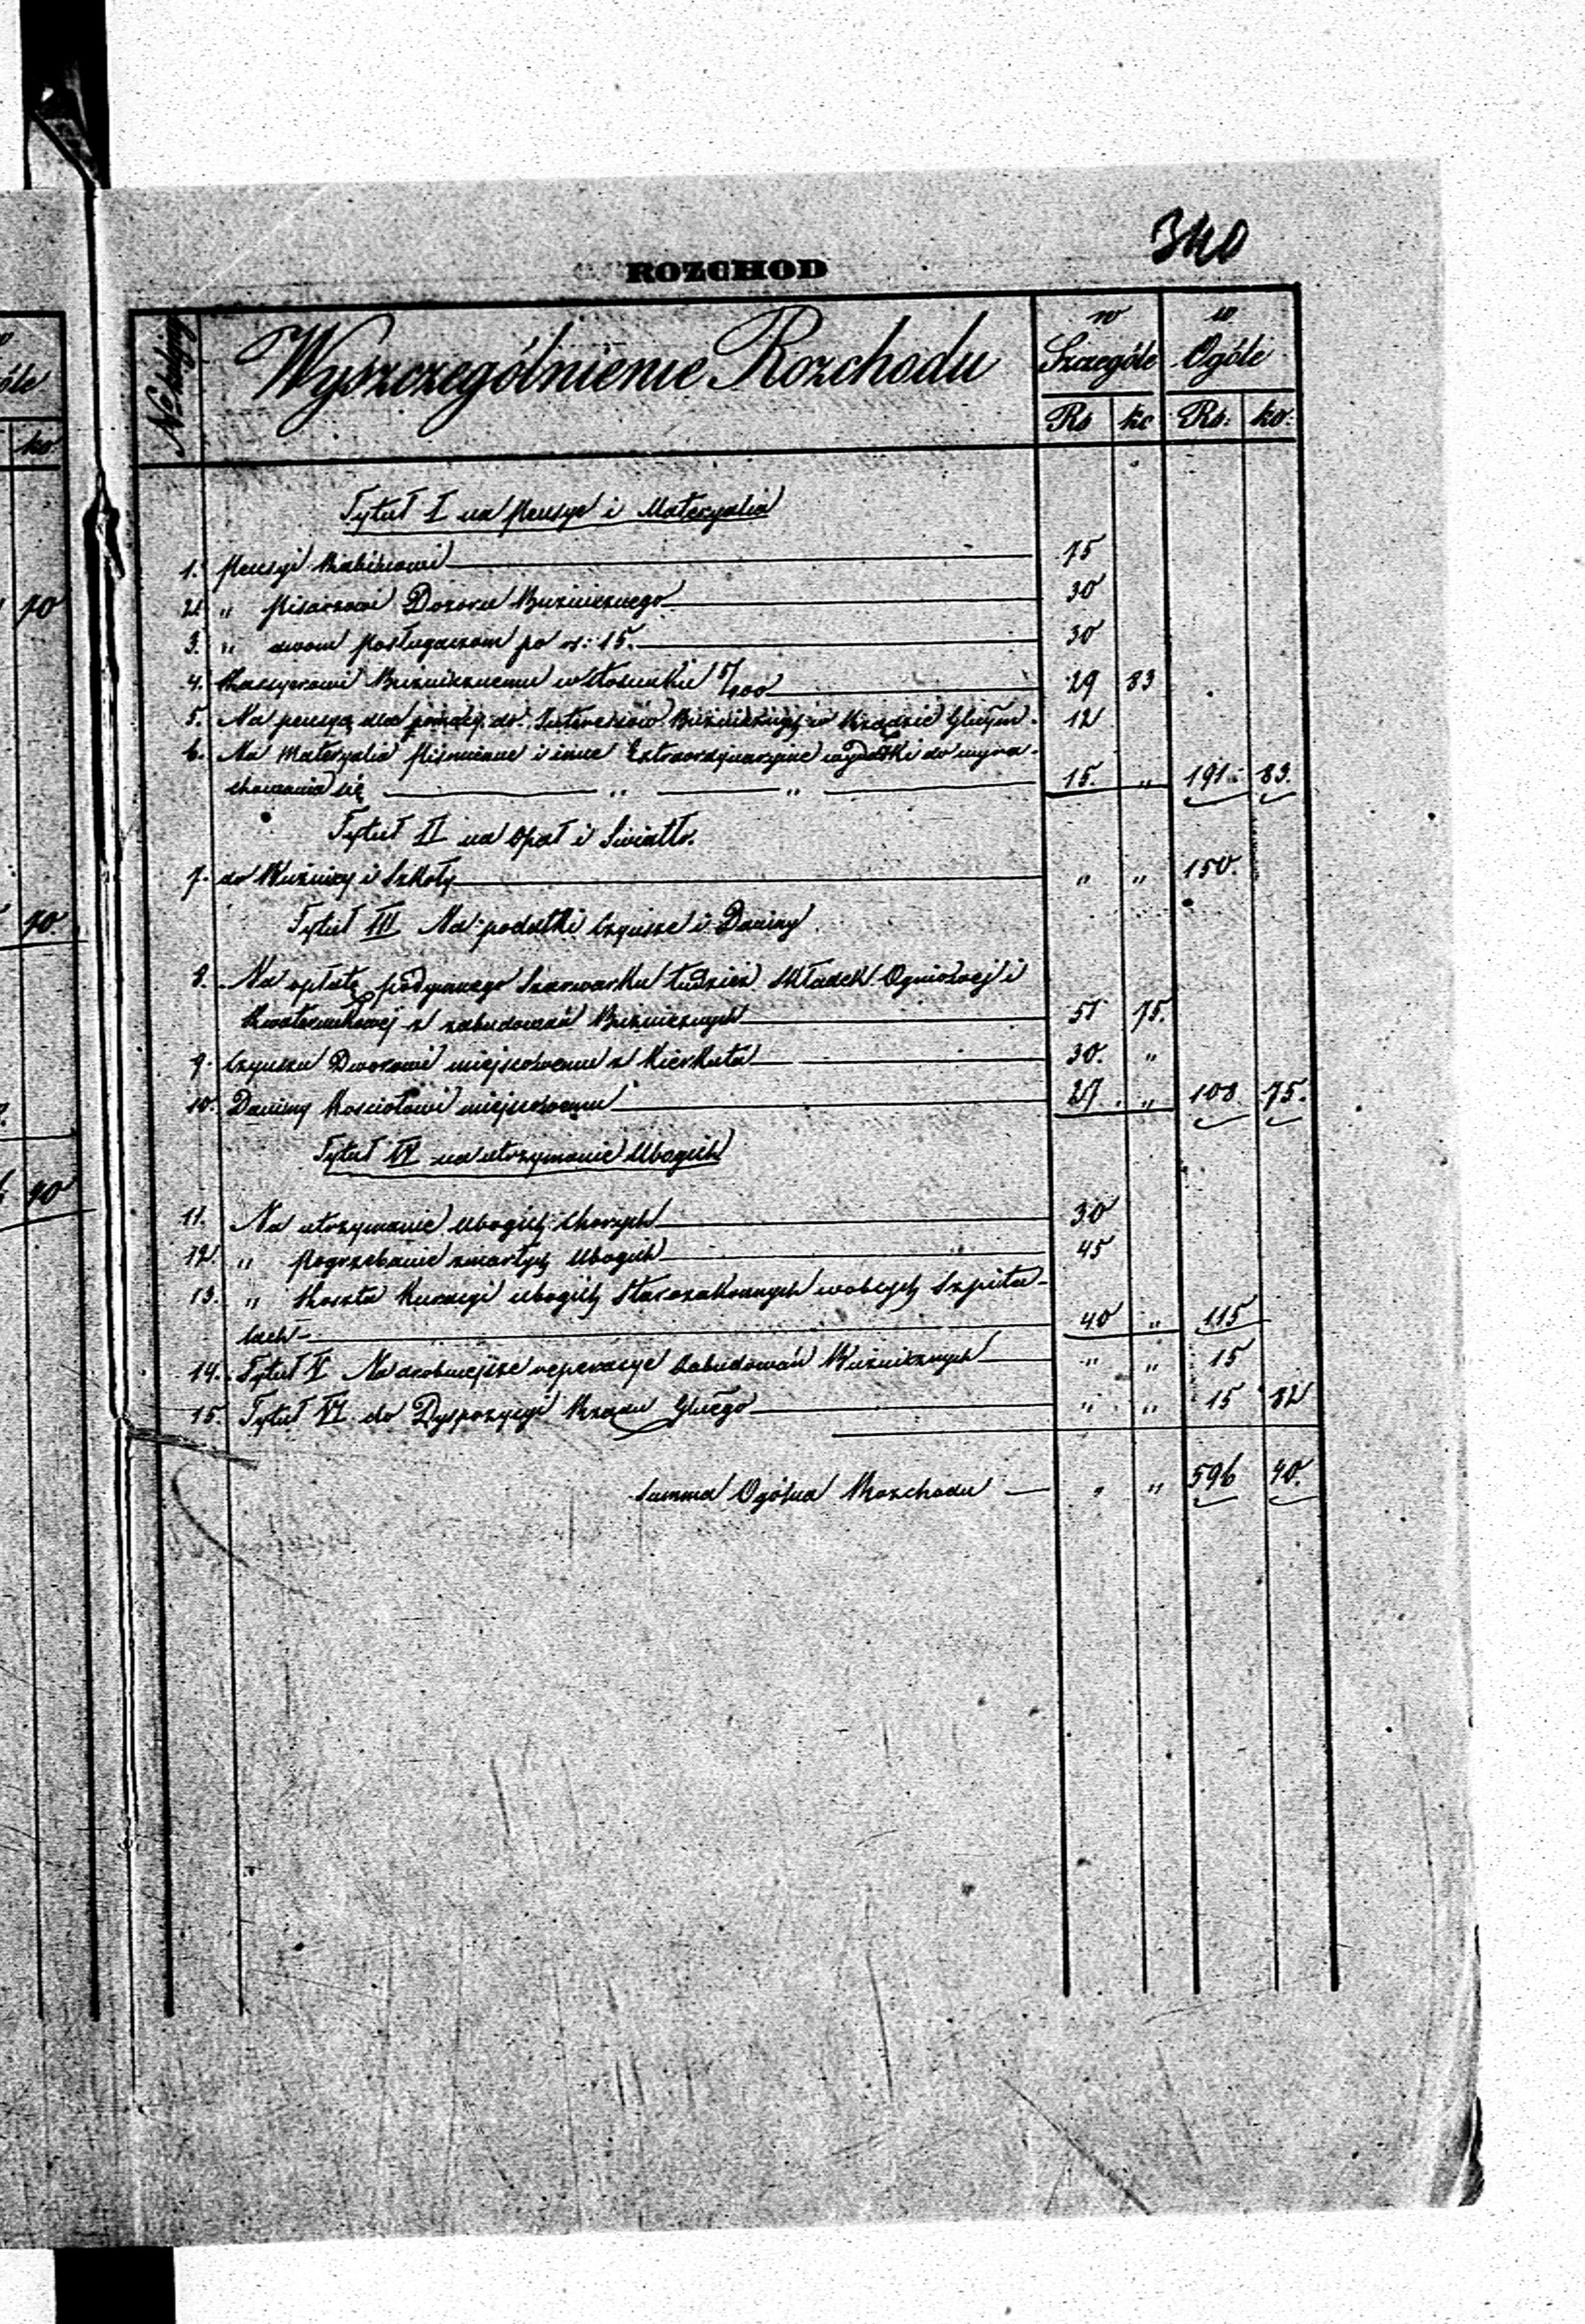 340
ROZCHOD
No kolejny
Wyszczególnienie Rozchodu
w Szczególe
w Ogóle
Rs kc Rs: ko:
Tytuł I na pensye i Materyalia
1. Pensyi Rabinowi 75
2. " Pisarzowi Dozoru Bużniczego 30
3. " dwom posługaczom po rs: 15. 30
4. Kassyerowi Bużniczemu w stosunku 5/100 29 83
5. Na pensyą dla do. Interesów Bużniczych w Rządzie Głuym. 12
6. Na Materyalia Piśmienne i inne Extraordynaryjne wydatki do wyra-
chowania się " " 15. " 191 83.
Tytuł II na Opał i Swiatło.
7. do Bużnicy i Szkoły " " 150.
Tytuł III Na podatki Czynsze i Daniny
8. Na opłatę podymnego Szarwarku tudzież Składek Ogniowej i
Kwaterunkowej z zabudowań Bużniczych 51 75.
9. Czynszu Dworowi miejscowemu z Kierkuta 30. "
10. Daniny Kosciołowi miejscowemu 27. " 108 75.
Tytuł IV na utrzymanie Ubogich
11. Na utrzymanie ubogich chorych 30
12. " Pogrzebanie zmarłych Ubogich 45
13. " Koszta Kuracyi ubogich Starozakonnych w obcych Szpita-
lach 40 " 115
14. Tytuł V Na drobniejsze reperacye Zabudowań Bużniczych " " 15
15. Tytuł VI do Dyspozycyi Rządu Głuego " " 15 82
Summa Ogólna Rozchodu " " 596 40.